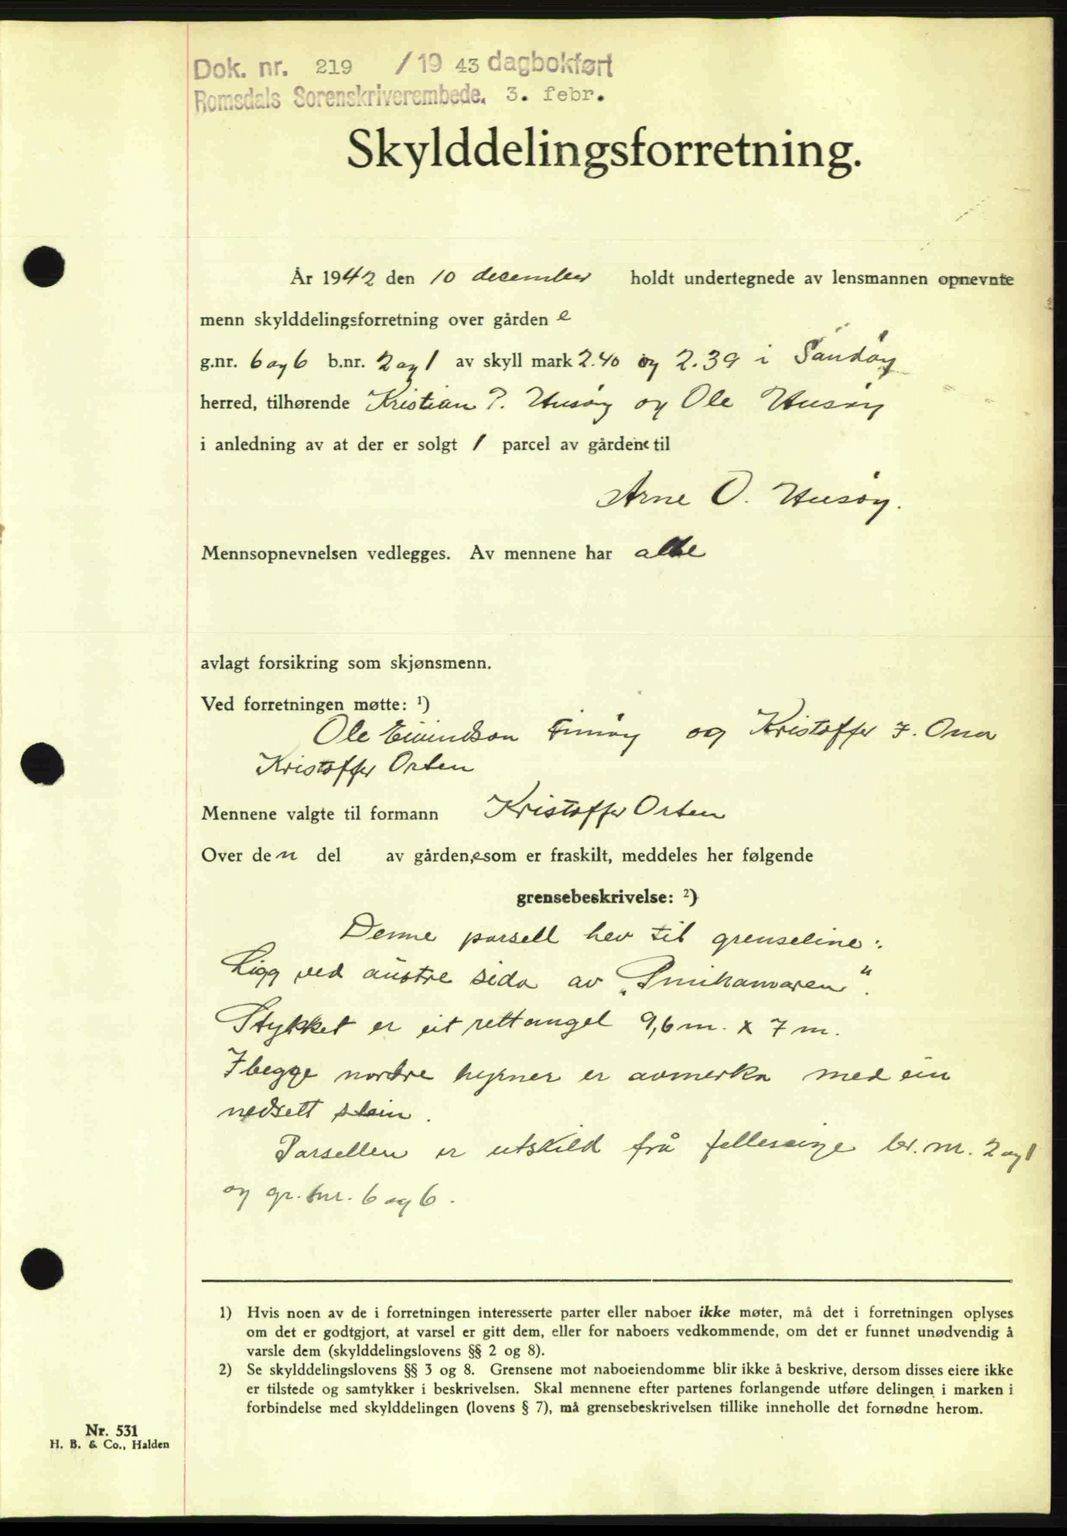 Dok. nr. 219 / 19 43 dagbokført
Romsdals Sorenskriverembede. 3. febr.
Skylddelingsforretning.
År 1942 den 10 december holdt undertegnede av lensmannen opnevnte
menn skylddelingsforretning over gården e
g.nr. 6 og 6 b.nr. 2 og 1 av skyll mark 2.40 og 2.39 i Sandøy
herred, tilhørende Kristian P. Husøy og Ole Husøy
i anledning av at der er solgt 1 parcel av gårdene til
Arne O. Husøy.
Mennsopnevnelsen vedlegges. Av mennene har alle
avlagt forsikring som skjønsmenn.
Ved forretningen møtte: ¹)
Ole Eivindson Finøy og Kristoffer I. Ona
Kristoffer Orten
Mennene valgte til formann Kristoffer Orten
Over den del av gården,e som er fraskilt, meddeles her følgende
grensebeskrivelse: ²)
Denne parsell hev til grenseline:
Ligg ved austre sida av
Stykket er eit rettangel 9,6 m. x 7 m.
I begge nordre hyrner er avmerka med ein
nedsett stein.
Parsellen er utskild frå felleseige br. nr. 2 og 1
og gr. nr. 6 og 6.
1) Hvis noen av de i forretningen interesserte parter eller naboer ikke møter, må det i forretningen oplyses
om det er godtgjort, at varsel er gitt dem, eller for naboers vedkommende, om det er funnet unødvendig å
varsle dem (skylddelingslovens §§ 2 og 8).
2) Se skylddelingslovens §§ 3 og 8. Grensene mot naboeiendomme blir ikke å beskrive, dersom disses eiere ikke
er tilstede og samtykker i beskrivelsen. Skal mennene efter partenes forlangende utføre delingen i marken i
forbindelse med skylddelingen (lovens § 7), må grensebeskrivelsen tillike inneholle det fornødne herom.
Nr. 531
H. B. & Co., Halden